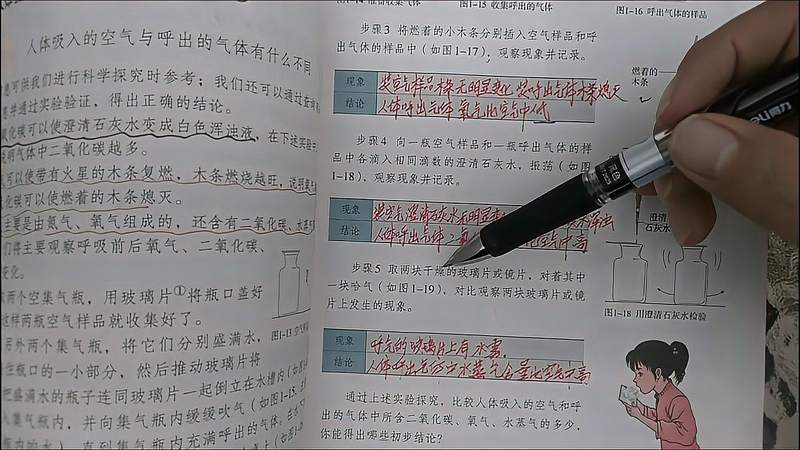 人体吸入的空气与呼出的气体有什么不同
息可供我们进行科学探究时参考；我们还可以通过查阅
并通过实验验证，得出正确的结论。
氧化碳可以使澄清石灰水变成白色浑浊液，在下述实验中
明气体中二氧化碳越多。
可以使带有火星的木条复燃，木条燃烧越旺，说明氧气
化碳可以使燃着的木条熄灭。
主要是由氮气、氧气组成的，还含有二氧化碳、水蒸气
们将主要观察呼吸前后氧气、二氧化碳、
变化。
取两个空集气瓶，用玻璃片①将瓶口盖好
这样两瓶空气样品就收集好了。
图1-13 空气
另外两个集气瓶，将它们分别盛满水，
住瓶口的一小部分，然后推动玻璃片将
把盛满水的瓶子连同玻璃片一起倒立在水槽内（如图
入集气瓶内，并向集气瓶内缓缓吹气（如图1-15
瓶内的水），直到集气瓶内充满呼出的气体
图1-14 准备收集气体
图1-15 收集呼出的气体
图1-16 呼出气体的样品
步骤3 将燃着的小木条分别插入空气样品和呼
出气体的样品中（如图1-17），观察现象并记录。
现象 装空气样品木条无明显变化 装呼出气体木条熄灭
结论 人体呼出气体氧气比空气中低
燃着的
木条
步骤4 向一瓶空气样品和一瓶呼出气体的样
品中各滴入相同滴数的澄清石灰水，振荡（如图
1-18），观察现象并记录。
现象 装空气澄清石灰水无明显变
结论 人体呼出气体二氧 空气中高
澄清
石灰水
图1-18 用澄清石灰水检验
步骤5 取两块干燥的玻璃片或镜片，对着其中
一块哈气（如图1-19），对比观察两块玻璃片或镜
片上发生的现象。
现象 呼气的玻璃片上有水雾
结论 人体呼出气体中水蒸气含量比空气中高
通过上述实验探究，比较人体吸入的空气和呼
出的气体中所含二氧化碳、氧气、水蒸气的多少，
你能得出哪些初步结论？
deli得力